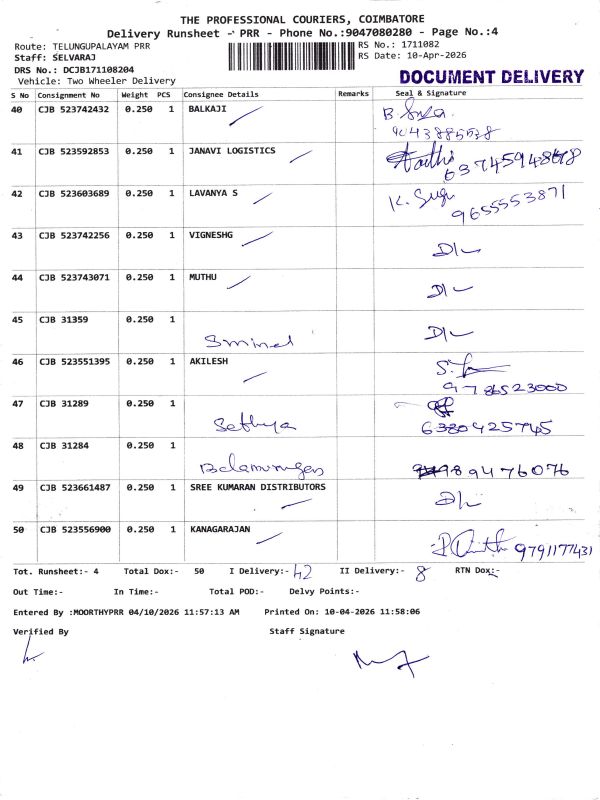 THE PROFESSIONAL COURIERS, COIMBATORE
Delivery Runsheet - PRR - Phone No.:9047080280 - Page No.:4
Route: TELUNGUPALAYAM PRR
Staff: SELVARAJ
DRS No.: DCJB171108204
Vehicle: Two Wheeler Delivery
RS No.: 1711082
RS Date: 10-Apr-2026
DOCUMENT DELIVERY
S No Consignment No Weight PCS Consignee Details Remarks Seal & Signature
40 CJB 523742432 0.250 1 BALKAJI
41 CJB 523592853 0.250 1 JANAVI LOGISTICS
42 CJB 523603689 0.250 1 LAVANYA S K.
9655553871
43 CJB 523742256 0.250 1 VIGNESHG D/L
44 CJB 523743071 0.250 1 MUTHU D/L
45 CJB 31359 0.250 1 D/L
46 CJB 523551395 0.250 1 AKILESH
9786523000
47 CJB 31289 0.250 1 Sethya
6380425745
48 CJB 31284 0.250 1 Balamurugan
9489476076
49 CJB 523661487 0.250 1 SREE KUMARAN DISTRIBUTORS D/L
50 CJB 523556900 0.250 1 KANAGARAJAN 9791177431
Tot. Runsheet:- 4 Total Dox:- 50 I Delivery:- 42 II Delivery:- 8 RTN Dox:-
Out Time:- In Time:- Total POD:- Delvy Points:-
Entered By :MOORTHYPRR 04/10/2026 11:57:13 AM Printed On: 10-04-2026 11:58:06
Verified By Staff Signature